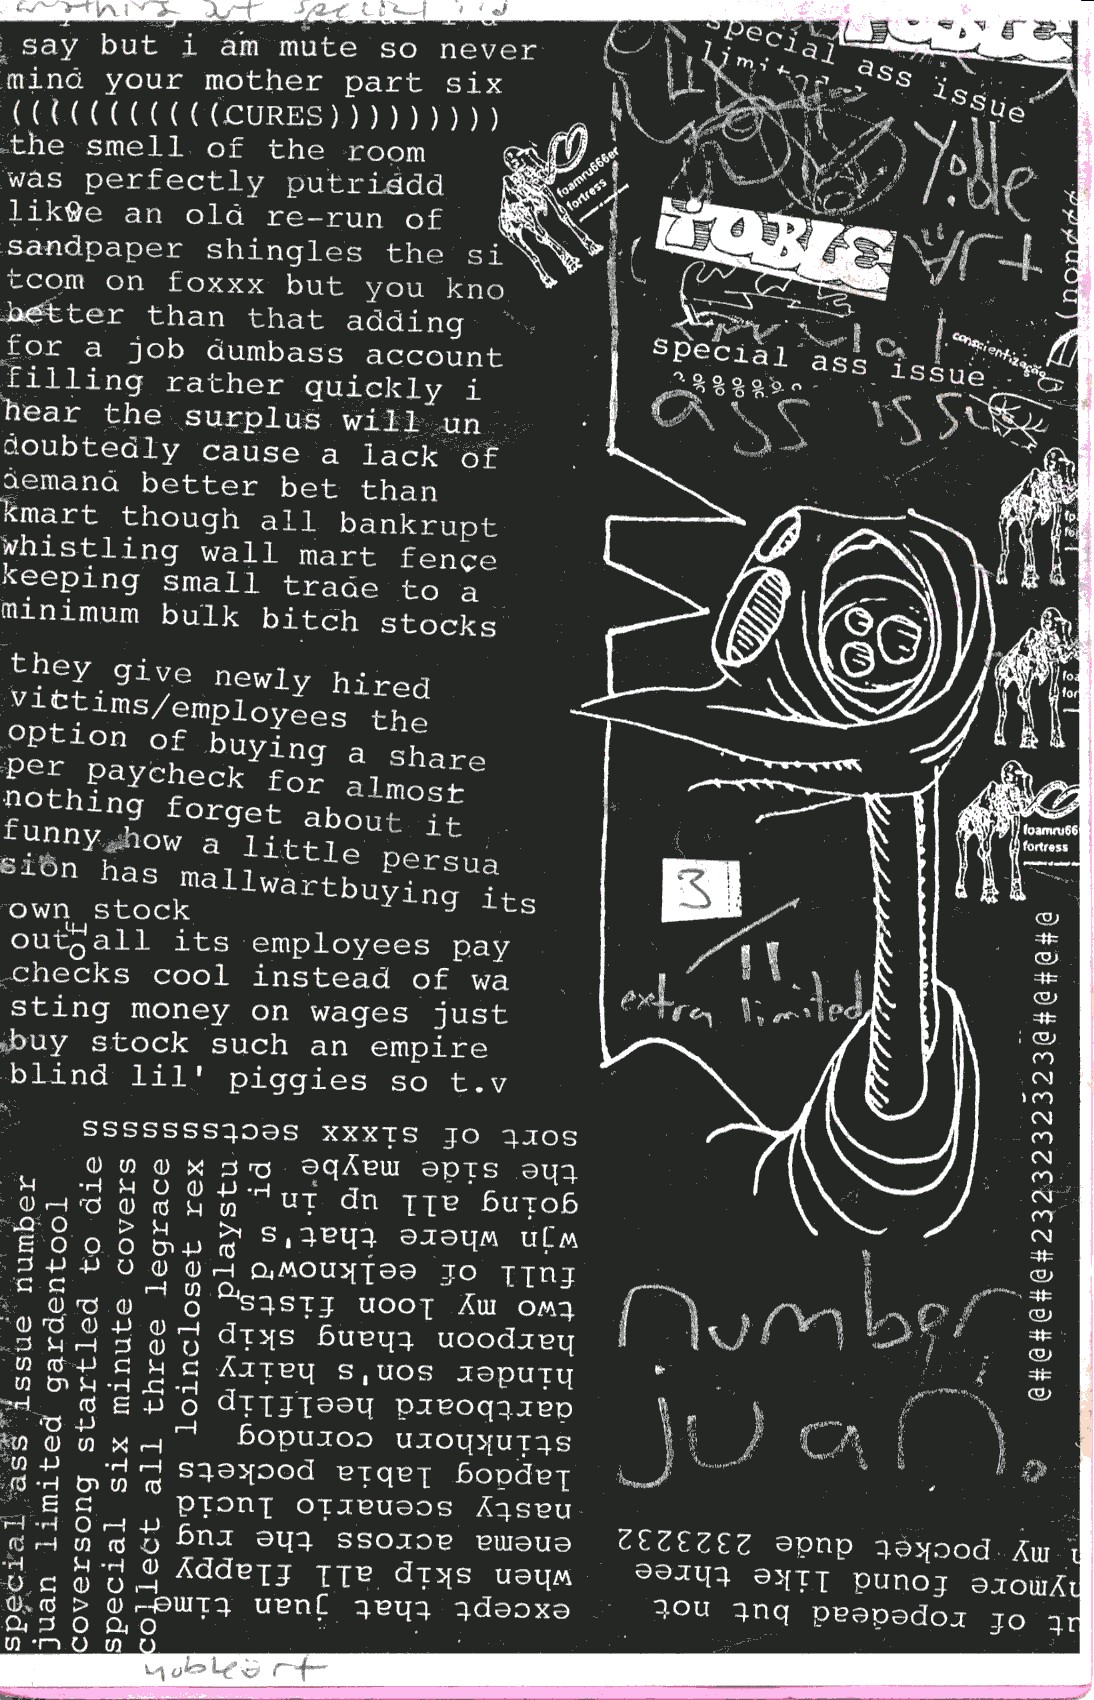 anything but special i'd
say but i am mute so never
mind your mother part six
(((((((((((CURES)))))))))
the smell of the room
was perfectly putriddd
like an old re-run of
sandpaper shingles the si
tcom on foxxx but you kno
better than that adding
for a job dumbass account
filling rather quickly i
hear the surplus will un
doubtedly cause a lack of
demand better bet than
kmart though all bankrupt
whistling wall mart fence
keeping small trade to a
minimum bulk bitch stocks
they give newly hired
victims/employees the
option of buying a share
per paycheck for almost
nothing forget about it
funny how a little persua
sion has mallwartbuying its
own stock
out of all its employees pay
checks cool instead of wa
sting money on wages just
buy stock such an empire
blind lil' piggies so t.v
except that juan time
when skip all flappy
enema across the rug
nasty scenario lucid
lapdog labia pockets
stinkhorn corndog
dartboard heelflip
hinder son's hairy
harpoon thang skip
two my loon fists
full of eelknow'd
wjn where that's
going all up in
the side maybe
sort of sixxx sectsssssss
special ass issue number
juan limited gardentool
coversong startled to die
special six minute covers
collect all three legrace
loincloset rex
playstu
id
special ass issue
limited
foamru666er
fortress
TOBLE
Art
special
special ass issue
conscientização
ass issue
foamru66
fortress
3
11
extra limited
@#@#@#@#@#23232323232323@#@#@#@#@
number
juan.
ut of ropedead but not
nymore found like three
n my pocket dude 2323232
nobleört